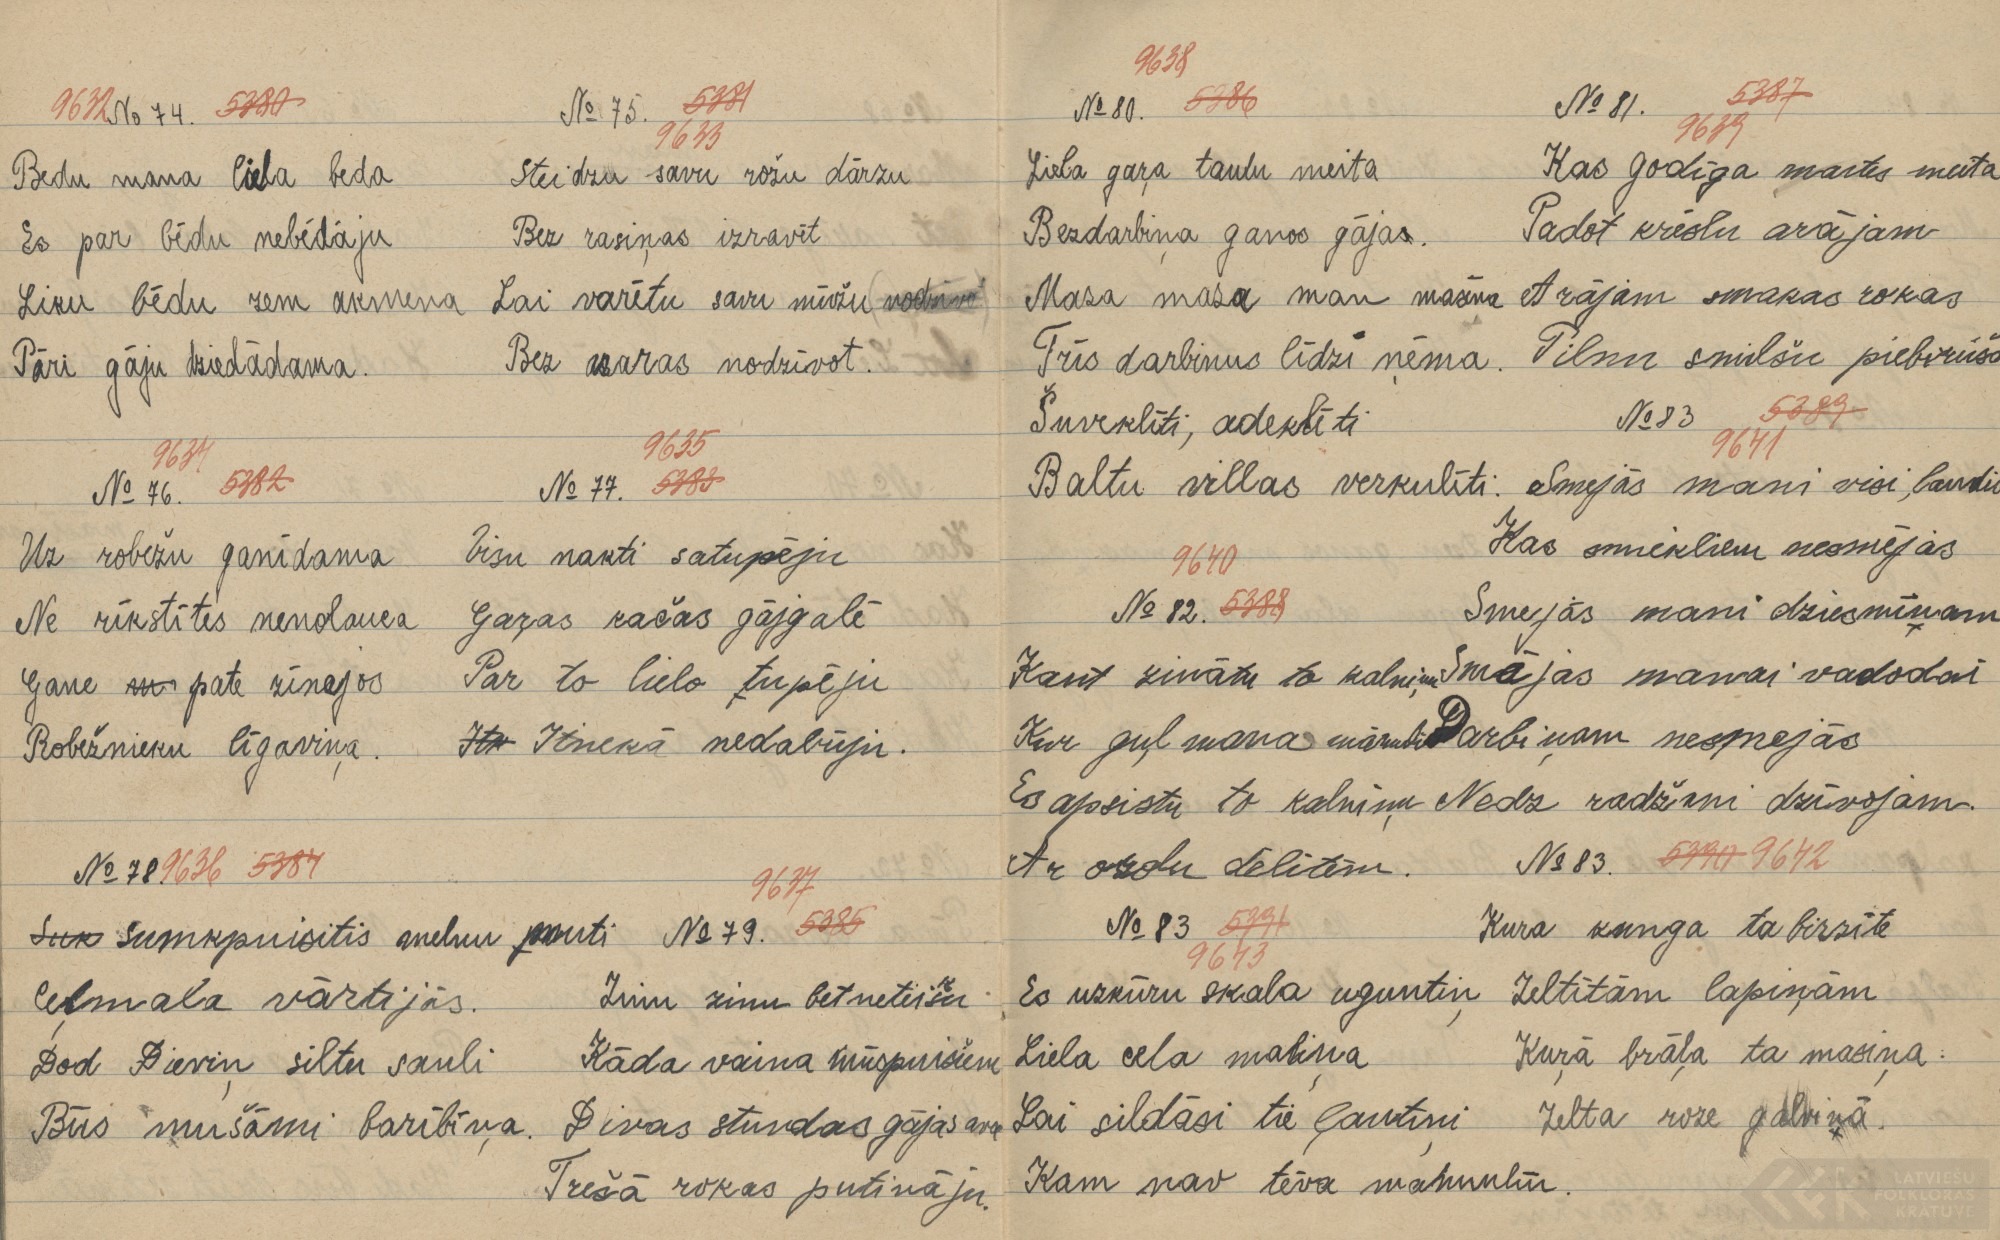 9632 No 74. 5380
Bedu mana liela beda
Es par bēdu nebēdāju
Liku bēdu zem akmeņa
Pāri gāju dziedādama.
No 75. 5381
9633
Steidzu savu rožu dārzu
Bez rasiņas izravēt
Lai varētu savu mūžu (nodzīvo)
Bez asaras nodzīvot.
9634
No 76. 5382
Uz robežu ganīdama
Ne rīkstītes nenolauza
Gane pate zinajos
Robežnieku līgaviņa.
9635
No 77. 5383
Visu nakti satupēju
Gaŗas kačas gājgalē
Par to lielo tupēju
Itnekā nedabūju.
No 78 9636 5384
Suk sumkpuisitis melnu pouti
Ceļmala vārtijās.
Dod Dieviņ siltu sauli
Būs mušāmi baribiņa.
9637
No 79. 5385
Zinu zinu bet neteišu
Kāda vaina mūspuišiem
Divas stundas gājas ava
Trešā rokas putināju.
9638
No 80. 5386
Liela gaŗa tautu meita
Bezdarbiņa ganos gājas.
Masa masa man masiņa
Trīs darbinus līdzi ņēma.
Šuveklīti, adeklīti
Baltu villas verkulīti.
No 81. 5387
9639
Kas godīga mates meita
Padot krēslu arājam
Arājam smakas rokas
Pilnu smilšu piebirušas
9640
No 82. 5388
Kaut zinātu to kalniņu
Kur guļ mana
Es apsistu to kalniņu
Ar ozolu
No 83 5389
9641
Smejās mani visi ļaudis
Kas smiekliem nesmējas
Smejās mani dziesmiņam
Smājas manai vadodai
Darbiņam nesmejās
Nedz radžami dzīvojam.
No 83. 5390 9642
Kura kunga ta birzīte
Zeltītām lapiņām
Kuŗā brāļa ta masiņa.
Zelta roze galviņā.
No 83 5391
9643
Es uzkūru skala uguntiņ
Liela cela maliņa
Lai sildāsi tie ļautiņi
Kam nav tēva
LATVIEŠU
FOLKLORAS
KRĀTUVE